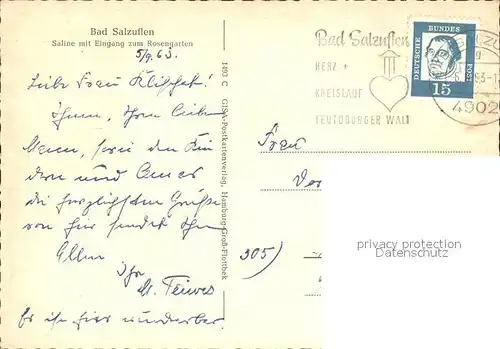 Bad Salzuflen
Saline mit Eingang zum Rosengarten
5/9.63.
Liebe Frau
Ihnen, Ihrem lieben
Mann, sowie den Kin
dern und
die herzlichsten Grüße
von hier sendet Ihnen
Allen
Ihr
Es ist hier wunderbar.
1493 C GISA-Postkartenverlag, Hamburg/Groß-Flottbek
Bad Salzuflen
HERZ +
KREISLAUF
TEUTOBURGER WALD
DEUTSCHE BUNDESPOST
15
4902
Frau
305)
privacy protection
Datenschutz